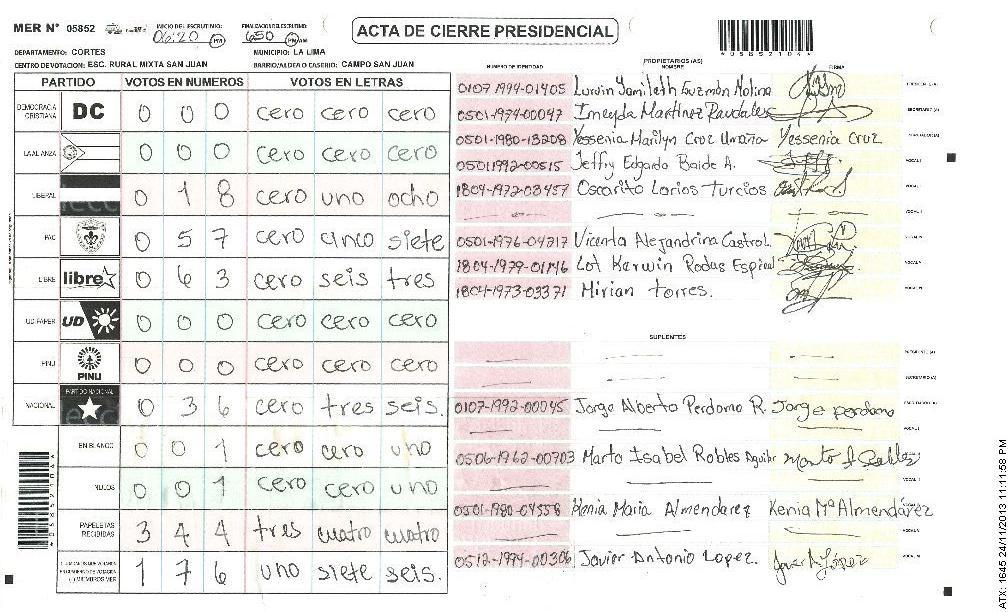 MER N° 05852 INICIO DEL ESCRUTINIO: 06:20 PM FINALIZACION DEL ESCRUTINIO: 650 PM AM
ACTA DE CIERRE PRESIDENCIAL
*05852104*
DEPARTAMENTO: CORTES MUNICIPIO: LA LIMA
CENTRO DE VOTACION: ESC. RURAL MIXTA SAN JUAN BARRIO/ALDEA O CASERIO: CAMPO SAN JUAN
PARTIDO VOTOS EN NUMEROS VOTOS EN LETRAS
DEMOCRACIA CRISTIANA DC 0 0 0 cero cero cero
LA ALIANZA 0 0 0 cero cero cero
LIBERAL 0 1 8 cero uno ocho
PAC 0 5 7 cero cinco siete
LIBRE libre 0 6 3 cero seis tres
UD-FAPER UD 0 0 0 cero cero cero
PINU PINU 0 0 0 cero cero cero
NACIONAL PARTIDO NACIONAL 0 3 6 cero tres seis.
EN BLANCO 0 0 1 cero cero uno
NULOS 0 0 1 cero cero uno
PAPELETAS RECIBIDAS 3 4 4 tres cuatro cuatro
CIUDADANOS QUE VOTARON EN CUADERNO DE VOTACION (+) MIEMBROS MER 1 7 6 uno siete seis.
*05852104*
PROPIETARIOS (AS)
NUMERO DE IDENTIDAD NOMBRE FIRMA
0107-1994-01405 Lurvin Yamileth Guzmán Molina PRESIDENTE (A)
0501-1974-00047 Imeyda Martinez Raudales SECRETARIO (A)
0501-1980-13208 Yessenia Marilyn Cruz Umaña Yessenia Cruz ESCRUTADOR (A)
05011992-00515 Jeffry Edgardo Baide A. VOCAL I
1804-1972-03457 Oscarito Larios Turcios VOCAL II
VOCAL III
0501-1976-04317 Vicenta Alejandrina Castro L. VOCAL IV
1804-1979-01146 Lot Kerwin Rodas Espinal VOCAL V
1804-1973-03371 Mirian Torres. VOCAL VI
SUPLENTES
PRESIDENTE (A)
SECRETARIO (A)
0107-1992-00045 Jorge Alberto Perdomo R. Jorge perdomo ESCRUTADOR (A)
VOCAL I
0506-1962-00703 Marta Isabel Robles Aguilar
VOCAL III
0501-1980-04558 Kenia Maria Almendarez Kenia Mª Almendárez
VOCAL V
0512-1994-00306 Javier Antonio Lopez. Javier A. López VOCAL VI
ATX: 1645 24/11/2013 11:11:58 PM